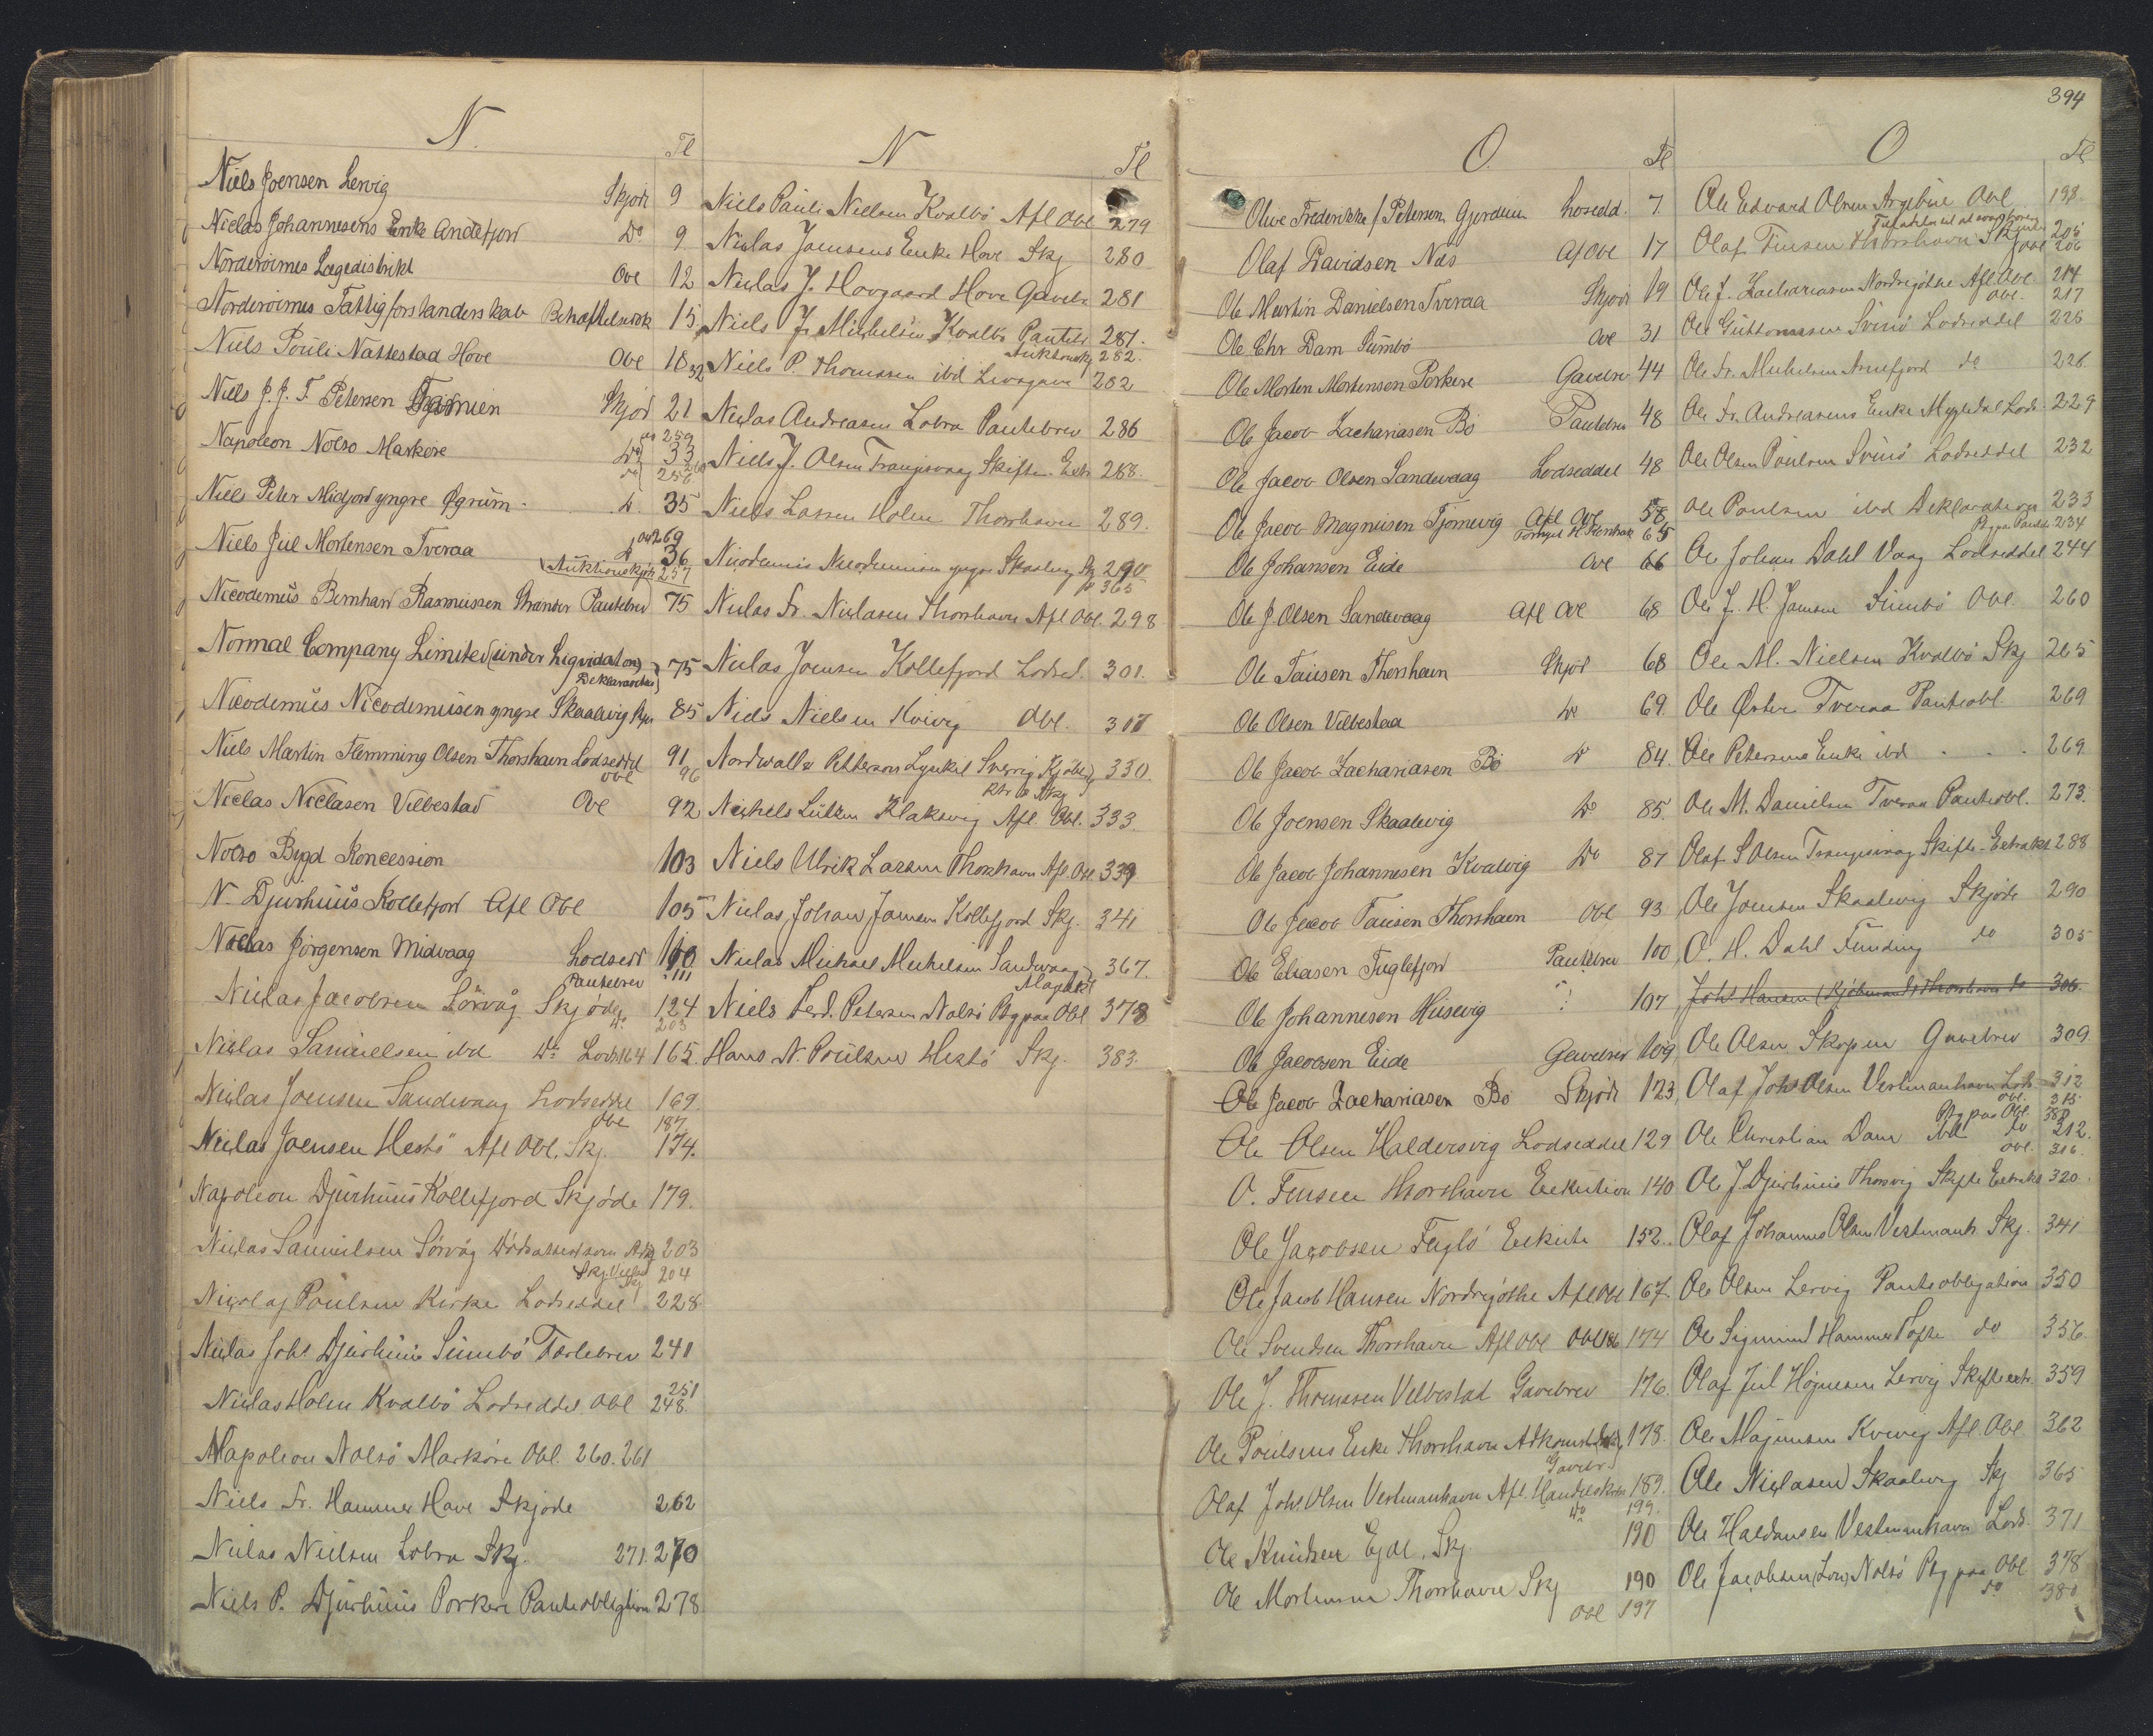 N.
Fl
Niels Joensen Lervig Skjøde 9
Niclas Johannesens Enke Andefjord Do 9
Norderøernes Lægedistrikt Obl 12
Norderøernes Fattigforstanderskab 15
Niels Pouli Nattestad Hove Obl 18 32
Niels J. J. F. Petersen Skjød 21
Napoleon Nolsø Markøre Do 33
Do 256
Niels Peter Midjord yngre Øgrum D. 35
269
Niels Juel Mortensen Tveraa D 36
Auktionskjøde 257
Nicodemus Bernhard Rasmussen Strander Pantebrev 75
Normal Company Limited (under Liqvidation) 75
Deklaration
Nicodemus Nicodemusen yngre Skaalevig 85
Niels Martin Flemming Olsen Thorshavn Lodseddel 91
Obl 96
Niclas Niclasen Velbestad Obl 92
Nolsø Bygd Koncession 103
N. Djurhuus Kollefjord Afl Obl 105
Niclas Jørgensen Midvaag Lodsedd 110
Pantebrev 111
Niclas Jacobsen Sörvåg Skjøde 124
Do 203
Niclas Samuelsen ibd Do Lods 164 165
Niclas Joensen Sandevaag Lodseddel 169.
Obl 187
Niclas Joensen Hestö Afl Obl. Skj. 174.
Napoleon Djurhuus Kollefjord Skjøde 179.
Niclas Samuelsen Sörvåg Dødsattest som Adk 203
Skj. 204
Nicolaj Poulsen Kirke Lodseddel 228
Niclas Johs Djurhuus Sumbø 241
251
Niclas Holm Kvalbö Lodseddel Obl 248.
Napoleon Nolsö Markøre Obl. 260. 261
Niels Fr. Hammer Hove Skjøde 262
Niclas Nielsen Lobra Skj. 271. 270
Niels P. Djurhuus Porkere Panteobligation 278
N
Fl
Niels Pauli Nielsen Kvalbö Afl Obl 279
Niclas Joensens Enke Hove Skj 280
Niclas J. Hovgaard Hove Gavebr 281
Niels Jr Michelsen Kvalbö Pantebr 281.
Auktionsskj 282.
Niels P. Thomasen ibd 282
Niclas Andreasen Lobra Pantebrev 286
Niels J. Olsen Trangisvaag Skifte Extr 288.
Niels Larsen Holm Thorshavn 289.
Nicodemus Nicodemusen yngre Skaalevig Skj 290
365
Niclas Fr. Niclasen Thorshavn Afl Obl. 298
Niclas Joensen Kollefjord Lodsed. 301.
Niels Nielsen Kvivig Obl. 307
Nordwall & Petterson Lysekil Sverrig 330.
Nichels Lützen Klaksvig Afl. Obl. 333.
Niels Ulrik Larsen Thorshavn Afl. Obl. 339
Niclas Johan Jensen Kollefjord Skj. 341
Niclas Michael Michelsen Sandevaag 367.
Niels Ferd. Petersen Nolsö Pbg paa Obl 378
Hans N. Poulsen Hestö Skj. 383.
O.
Fl
Olive Frederikke Petersen 7.
Olaf Davidsen Næs Af Obl 17
Ole Martin Danielsen Tveraa Skjøde 19
Ole Chr Dam Sumbø Obl 31
Ole Morten Mortensen Porkere Gavebrev 44
Ole Jacob Zachariasen Bø Pantebrev 48
Ole Jacob Olsen Sandevaag Lodseddel 48
Ole Jacob Magnusen Tjørnevig Afl Obl 58
65
Ole Johansen Eide Obl 66
Ole J. Olsen Sandevaag Afl Obl 68
Ole Fausen Thorshavn Skjød 68
Ole Olsen Velbestad Do 69
Ole Jacob Zachariasen Bø D 84.
Ole Joensen Skaalevig Do 85
Ole Jacob Johannesen Kvalvig Do 87
Ole Jacob Fausen Thorshavn Obl 93
Ole Eliasen Fuglefjord Pantebrev 100
Ole Johannesen Husevig 107
Ole Jacobsen Eide Gavebrev 109
Ole Jacob Zachariasen Bø Skjøde 123
Ole Olsen Haldersvig Lodseddel 129
O. Finsen Thorshavn Exekution 140
Ole Jacobsen Fuglö 152.
Ole Jacob Hansen Nordregøthe Afl Obl 167.
Ole Svendsen Thorshavn Afl Obl Obl 186 174
Ole J. Thomasen Velbestad Gavebrev 176.
Ole Poulsens Enke Thorshavn 178.
Gavebr.
Olaf Johs Olsen Vestmanhavn Afl. 189.
Do 199.
Ole Knudsen Ejde, Skj 190
Ole Mortensen Thorshavn Skj 190
Obl 197
394
O
Fl
Ole Edvard Olsen Argebue Obl 198.
Olaf Finsen Thorshavn Skjøde 205
Obl 206
Ole J. Zachariasen Nordregøthe Afl Obl. 214
Obl. 217
Ole Guttormsen Svinö Lodseddel 226
Ole Fr. Michelsen Arnefjord do 226.
Ole Fr. Andreasens Enke Myggedal Lods. 229
Ole Olsen Poulsen Svinö Lodseddel 232
Ole Poulsen ibd Deklaration 233
234
Ole Johan Dahl Vaag Lodseddel 244
Ole J. H. Jensen Sumbö Obl. 260
Ole M. Nielsen Kvalbö Skj 265
Ole Øster Tveraa Panteobl. 269
Ole Petersens Enke ibd 269
Ole M. Danielsen Tveraa Panteobl. 273.
Olaf S Olsen Trangisvaag Skifte-Extrakt 288
Ole Joensen Skaalevig Skjøde 290
O. H. Dahl Funding do 305
Johs Hansen (Kjøbmand) Thorshavn do 306
Ole Olsen Skopen Gavebrev 309
Olaf Johs Olsen Vestmanhavn Lods. 312
Obl. 315
Pbg paa Obl. 380
Ole Christian Dam ibd do 312.
Obl. 316.
Ole J. Djurhuus Thorsvig Skifte Extrakt 320.
Olaf Johannes Olsen Vestmanh. Skj. 341
Ole Olsen Lervig Panteobligation 350
Ole Sigmund Hammer Tofte do 356.
Olaf Juel Højnesen Lervig Skifteextr. 359
Ole Magnusen Kvivig Afl. Obl 362
Ole Niclasen Skaalevig Skj 365
Ole Haldansen Vestmanhavn Lods. 371
Ole Jacobsen Nolsö Pbg paa Obl 378
do 380